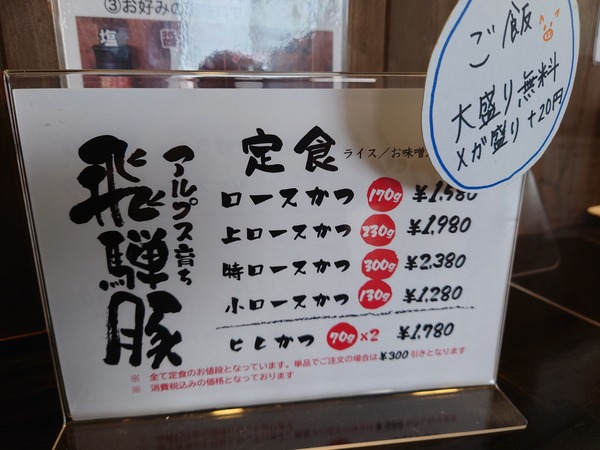 ③お好みの
塩
ご飯
大盛り無料
メガ盛り+20円
アルプス育ち
飛騨豚
定食 ライス／お味噌
ロースかつ 170g ¥1,580
上ロースかつ 230g ¥1,980
特ロースかつ 300g ¥2,380
小ロースかつ 130g ¥1,280
ヒレかつ 70g×2 ¥1,780
※ 全て定食のお値段となっています。単品でご注文の場合は¥300引きとなります
※ 消費税込みの価格となっております